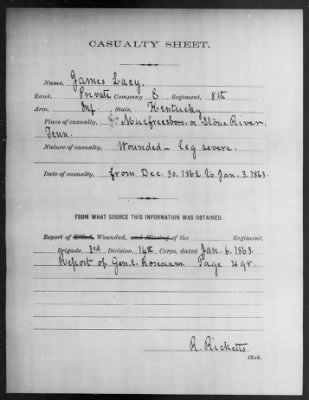 CASUALTY SHEET.
Name, James Lacy.
Rank, Private Company E Regiment, 8th
Arm, Inf, State, Kentucky
Place of casualty, Murfreesboro or Stone River
Tenn.
Nature of casualty, Wounded - leg severe.
Date of casualty, from Dec. 30. 1862 to Jan. 3. 1863.
FROM WHAT SOURCE THIS INFORMATION WAS OBTAINED.
Report of Killed, Wounded, and Missing of the Regiment,
Brigade, 3rd Division, 14th Corps, dated Jan. 6. 1863.
Report of Gen. Page 498.
R. Ricketts
Clerk.